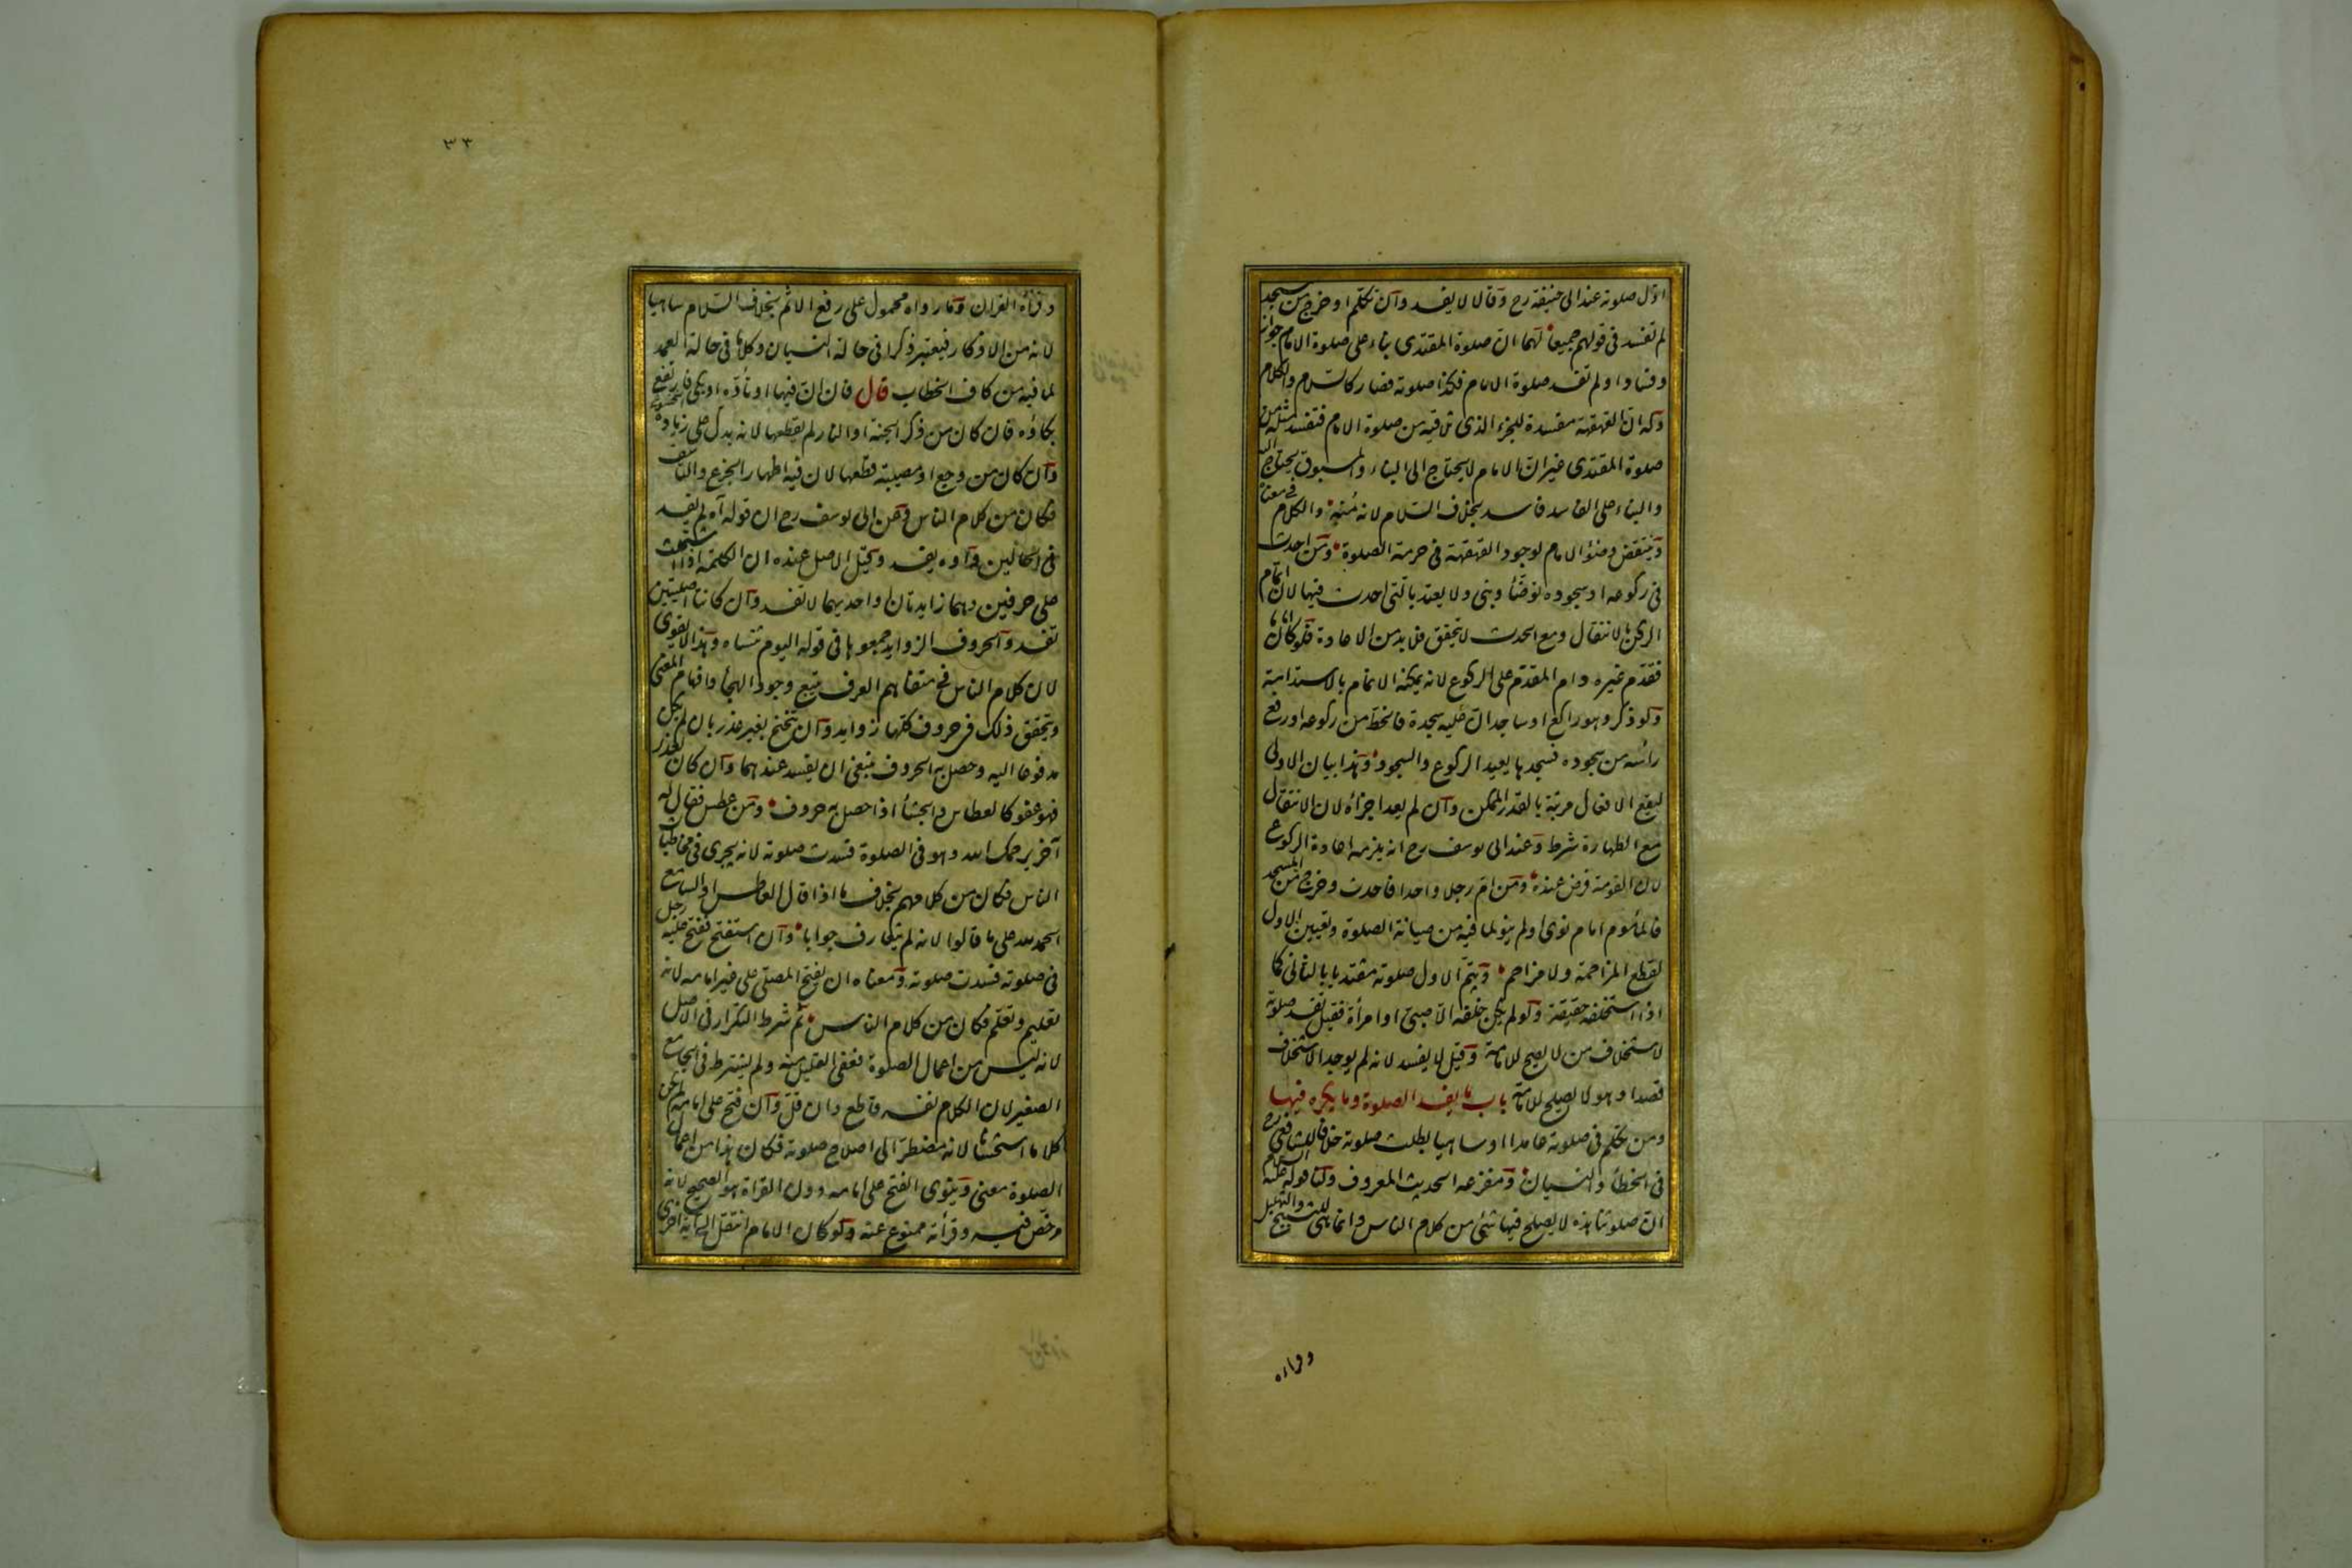 الاول صلوته عند ابى حنيفة رح وقالا لا يفسد وان تكلم او خرج من المسجد
لم تفسد فى قولهم جميعا لهما ان صلوة المقتدى بناء على صلوة الامام جوازا
وفسادا ولم تفسد صلوة الامام فكذا صلوته فصار كالسلام والكلام
وله ان القهقهة مفسدة للجزء الذى تلاقيه من صلوة الامام فتفسد مثله من
صلوة المقتدى غير ان الامام لا يحتاج الى البناء والمسبوق يحتاج اليه
والبناء على الفاسد فاسد بخلاف السلام لانه مُنهٍ والكلام فى معناه
وينتقض وضوء الامام لوجود القهقهة فى حرمة الصلوة ومن احدث
فى ركوعه او سجوده توضّأ وبنى ولا يعتد بالتى احدث فيها لان اتمام
الركن بالانتقال ومع الحدث لا يتحقق فلا بد من الاعادة فلو كان اماما
فقدّم غيره دام المقدّم على الركوع لانه يمكنه الاتمام بالاستدامة
ولو ذكر وهو راكع او ساجد ان عليه سجدة فانحط من ركوعه او رفع
رأسه من سجوده فسجدها يعيد الركوع والسجود وهذا بيان الاولى
ليقع الافعال مرتبة بالقدر الممكن وان لم يعد اجزأه لان الانتقال
مع الطهارة شرط وعند ابى يوسف رح انه يلزمه اعادة الركوع
لان القومة فرض عنده ومن امّ رجلا واحدا فاحدث وخرج من المسجد
فالمأموم امام نوى او لم ينو لما فيه من صيانة الصلوة وتعيين الاول
لقطع المزاحمة ولا مزاحم ويتمّ الاول صلوته مقتديا بالثانى كما
اذا استخلفه حقيقة ولو لم يكن خلفه الا صبىّ او امرأة فقيل تفسد صلوته
لاستخلاف من لا يصح للامامة وقيل لا يفسد لانه لم يوجد الاستخلاف
قصدا وهو لا يصلح للامامة باب ما يفسد الصلوة وما يكره فيها
ومن تكلم فى صلوته عامدا او ساهيا بطلت صلوته خلافا للشافعى رح
فى الخطأ والنسيان ومفزعه الحديث المعروف ولنا قوله عليه السلام
ان صلوتنا هذه لا يصلح فيها شئ من كلام الناس وانما هى للتسبيح والتهليل
وقراءه
٣٣
وقراه القران وما رواه محمول على رفع الاثم بخلاف السلام ساهيا
لانه من الاذكار فيعتبر ذكرا فى حالة النسيان وكلاما فى حالة العمد
لما فيه من كاف الخطاب قال فان انّ فيها او تأوّه او بكى فارتفع
بكاؤه فان كان من ذكر الجنة او النار لم يقطعها لانه يدل على زيادة الخشوع
وان كان من وجع او مصيبة قطعها لان فيه اظهار الجزع والتأسف
فكان من كلام الناس وعن ابى يوسف رح ان قوله آه لم يفسد
فى الحالين واوه يفسد وقيل الاصل عنده ان الكلمة اذا اشتملت
على حرفين وهما زايدتان او احديهما لا تفسد وان كانتا اصليتين
تفسد والحروف الزوايد جمعوها فى قوله اليوم تنساه وهذا لا يقوى
لان كلام الناس فى متفاهم العرف يتبع وجود الهجأ وافهام المعنى
ويتحقق ذلك فى حروف كلها زوايد وان تنحنح بغير عذر بان لم يكن
مدفوعا اليه وحصل به الحروف ينبغى ان يفسد عندهما وان كان لعذر
فهو عفو كالعطاس والجشأ اذا حصل به حروف ومن عطس فقال له
آخر يرحمك الله وهو فى الصلوة فسدت صلوته لانه يجرى فى مخاطبات
الناس فكان من كلامهم بخلاف ما اذا قال العاطس او السامع
الحمد لله على ما قالوا لانه لم يتعارف جوابا وان استفتح رجل ففتح عليه
فى صلوته فسدت صلوته ومعناه ان يفتح المصلّى على غير امامه لانه
تعليم وتعلم فكان من كلام الناس ثم شرط التكرار فى الاصل
لانه ليس من اعمال الصلوة فعفى القليل منه ولم يشترط فى الجامع
الصغير لان الكلام نفسه قاطع وان قلّ وان فتح على امامه لم يكن
كلاما استحسانا لانه مضطرّ الى اصلاح صلوته فكان هذا من اعمال
الصلوة معنى وينوى الفتح على امامه دون القراة هو الصحيح لانه
مرخّص فيه وقرأته ممنوع عنه ولو كان الامام انتقل الى آية اخرى